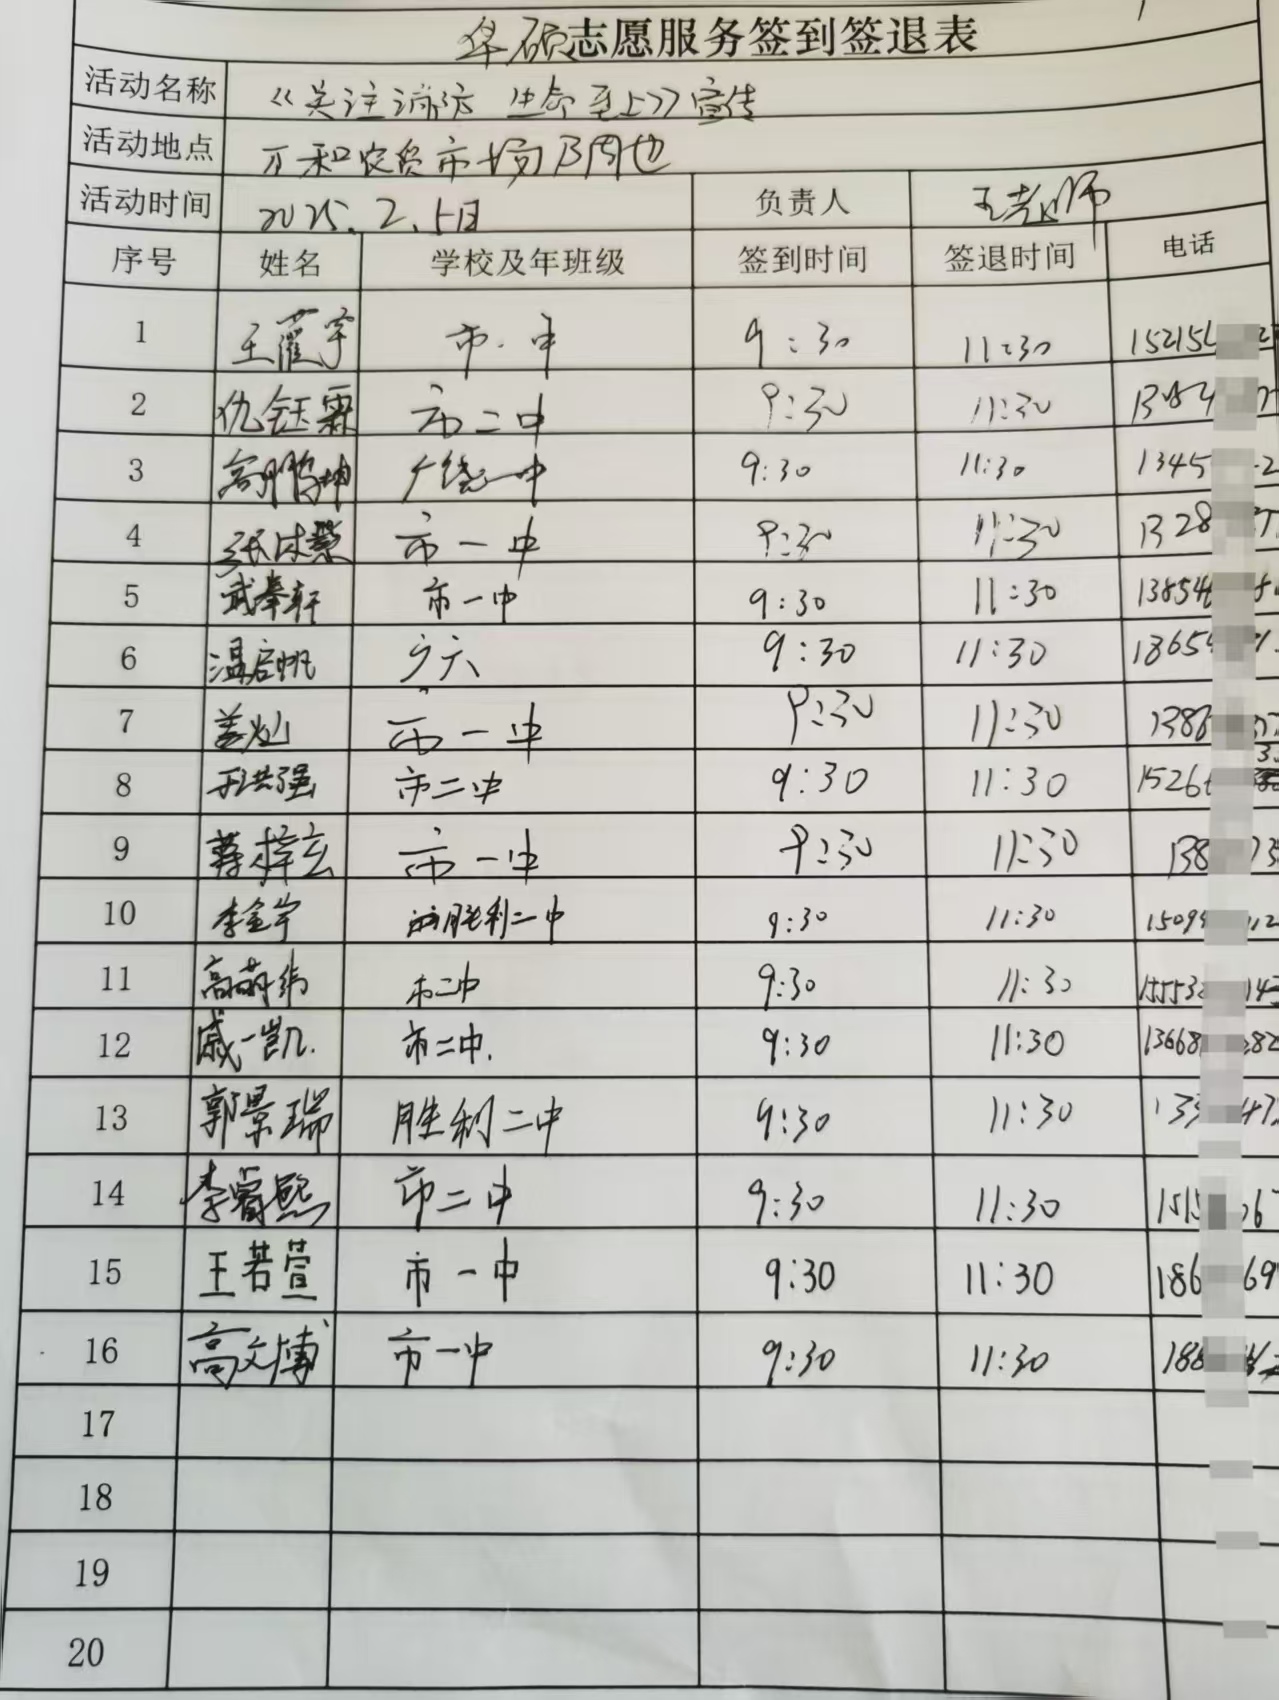 华硕志愿服务签到签退表
活动名称 《关注消防 生命至上》宣传
活动地点 万和农贸市场及周边
活动时间 2025.2.5日 负责人 王老师
序号 姓名 学校及年班级 签到时间 签退时间 电话
1 王藿宇 市一中 9:30 11:30 15215
2 仇钰霖 市二中 9:30 11:30
3 高鹏坤 广饶一中 9:30 11:30 1345
4 市一中 9:30 11:30 1328
5 武奉轩 市一中 9:30 11:30 13854
6 温启帆 广六 9:30 11:30 1865
7 盖灿 市一中 9:30 11:30 138
8 于洪强 市二中 9:30 11:30 1526
9 蒋梓玄 市一中 9:30 11:30 138
10 李金宇 胜利二中 9:30 11:30 1509
11 高萌纬 市二中 9:30 11:30 15553
12 戚一凯 市二中 9:30 11:30 13668 82
13 郭景瑞 胜利二中 9:30 11:30 133 47
14 李睿熙 市二中 9:30 11:30 1515 67
15 王若萱 市一中 9:30 11:30 186 69
16 高文博 市一中 9:30 11:30 188
17
18
19
20